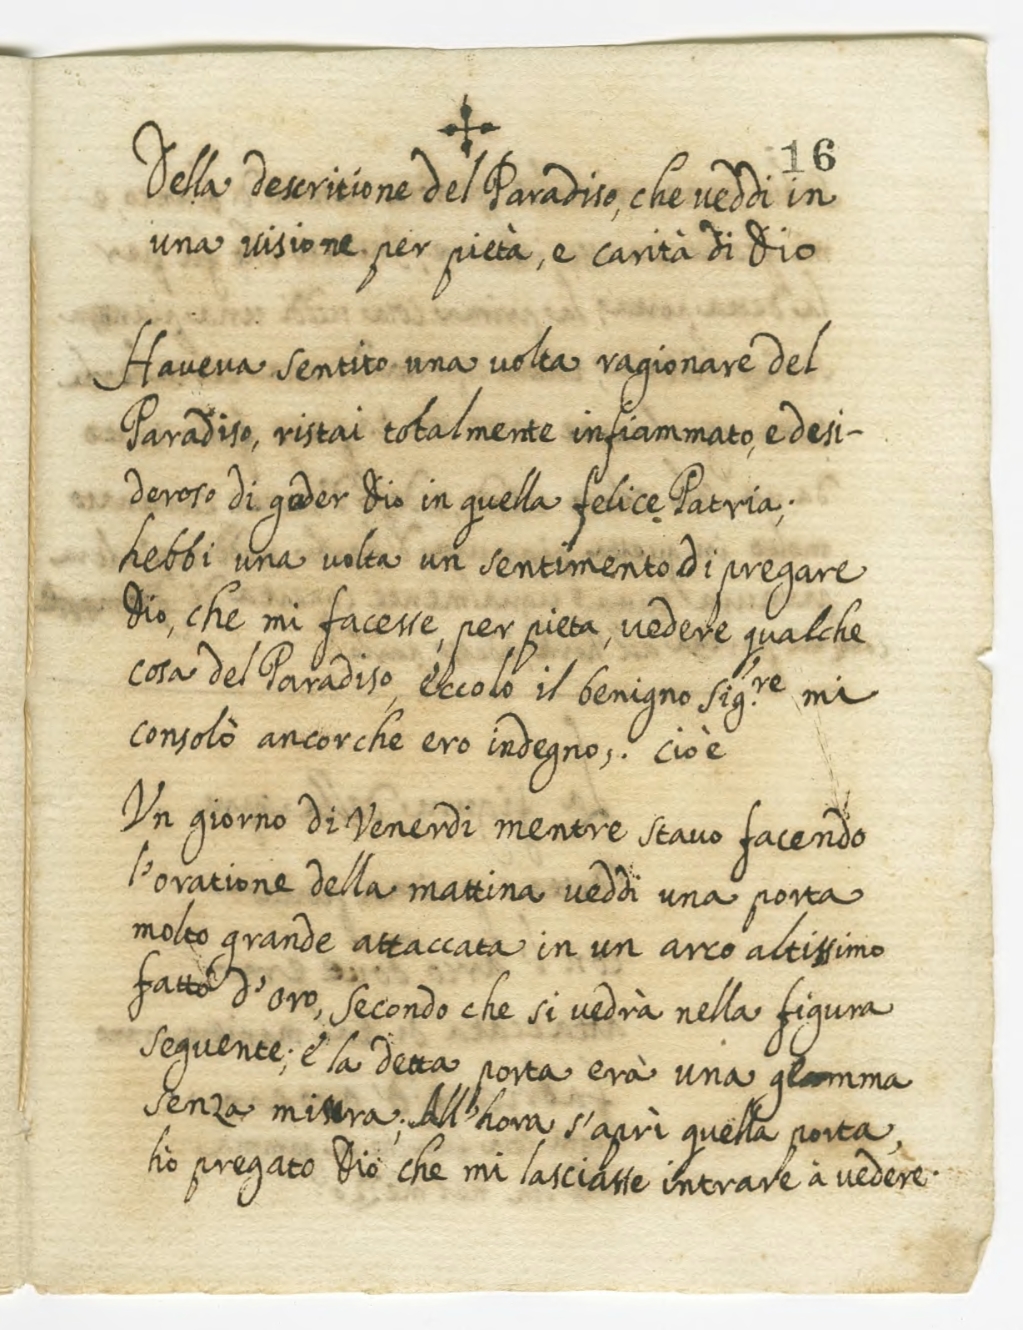 16
Della descritione del Paradiso, che veddi in
una visione per pietà, e carità di Dio
Haveva sentito una volta ragionare del
Paradiso, ristai totalmente infiammato, e desi-
deroso di goder Dio in quella felice Patria;
hebbi una volta un sentimento di pregare
Dio, che mi facesse, per pieta, vedere qualche
cosa del Paradiso, èccolo il benigno Sig.re mi
consolò ancorche ero indegno,. cioè
Un giorno di Venerdi mentre stavo facendo
l'oratione della mattina veddi una porta
molto grande attaccata in un arco altissimo
fatto d'oro, secondo che si vedrà nella figura
seguente; é la detta porta erà una gemma
senza misura; All'hora s'aprì quella porta,
hò pregato Dio che mi lasciasse intrare à vedere.